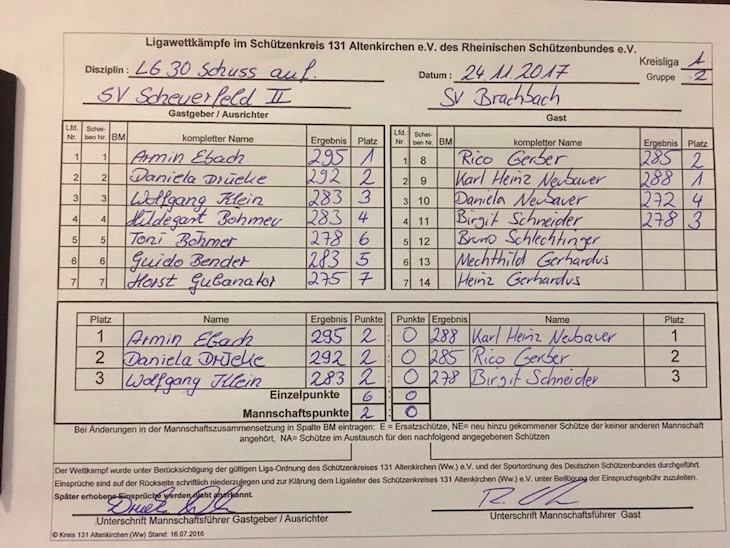 Ligawettkämpfe im Schützenkreis 131 Altenkirchen e.V. des Rheinischen Schützenbundes e.V.
Disziplin : LG 30 Schuss auf. Datum : 24.11.2017 Kreisliga 1
Gruppe 2
SV Scheuerfeld II SV Brachbach
Gastgeber / Ausrichter Gast
Lfd. Nr. Scheiben Nr. BM kompletter Name Ergebnis Platz Lfd. Nr. Scheiben Nr. BM kompletter Name Ergebnis Platz
1 1 Armin Ebach 295 1 1 8 Rico Gerber 285 2
2 2 Daniela Drüeke 292 2 2 9 Karl Heinz Neubauer 288 1
3 3 Wolfgang Klein 283 3 3 10 Daniela Neubauer 272 4
4 4 Hildegart Böhmer 283 4 4 11 Birgit Schneider 278 3
5 5 Toni Böhmer 278 6 5 12 Bruno Schlechtinger
6 6 Guido Bender 283 5 6 13 Mechthild Gerhardus
7 7 Horst Gubanator 275 7 7 14 Heinz Gerhardus
Platz Name Ergebnis Punkte : Punkte Ergebnis Name Platz
1 Armin Ebach 295 2 : 0 288 Karl Heinz Neubauer 1
2 Daniela Drüeke 292 2 : 0 285 Rico Gerber 2
3 Wolfgang Klein 283 2 : 0 278 Birgit Schneider 3
Einzelpunkte 6 : 0
Mannschaftspunkte 2 : 0
Bei Änderungen in der Mannschaftszusammensetzung in Spalte BM eintragen: E = Ersatzschütze, NE= neu hinzu gekommener Schütze der keiner anderen Mannschaft
angehört, NA= Schütze im Austausch für den nachfolgend angegebenen Schützen
Der Wettkampf wurde unter Berücksichtigung der gültigen Liga-Ordnung des Schützenkreises 131 Altenkirchen (Ww.) e.V. und der Sportordnung des Deutschen Schützenbundes durchgeführt.
Einsprüche sind auf der Rückseite schriftlich niederzulegen und zur Klärung dem Ligaleiter des Schützenkreises 131 Altenkirchen (Ww.) e.V. unter Beifügung der Einspruchsgebühr zuzuleiten.
Später erhobene Einsprüche werden nicht anerkannt.
Unterschrift Mannschaftsführer Gastgeber / Ausrichter Unterschrift Mannschaftsführer Gast
© Kreis 131 Altenkirchen (Ww) Stand: 16.07.2016